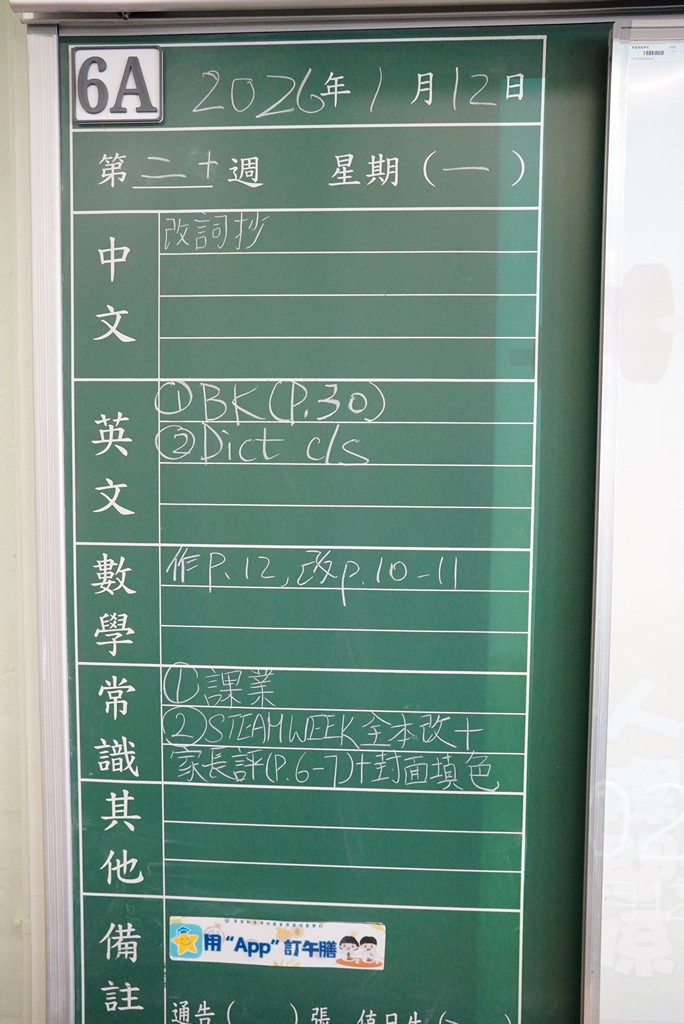 6A
2026年1月12日
第二十週 星期(一)
中文
改詞抄
英文
①BK(P.30)
②Dict c/s
數學
作P.12,改p.10-11
常識
①課業
②STEAM WEEK全本改+
家長評(P.6-7)+封面填色
其他
備註
用“App”訂午膳
通告( )張 值日生